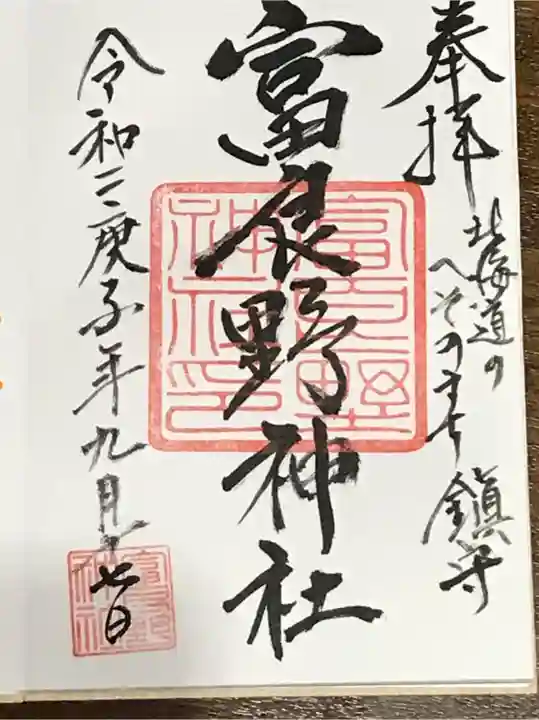 奉拝
北海道の
へそのまち 鎮守
富良野神社
富良野神社印
令和二庚子年九月十七日
富良野神社